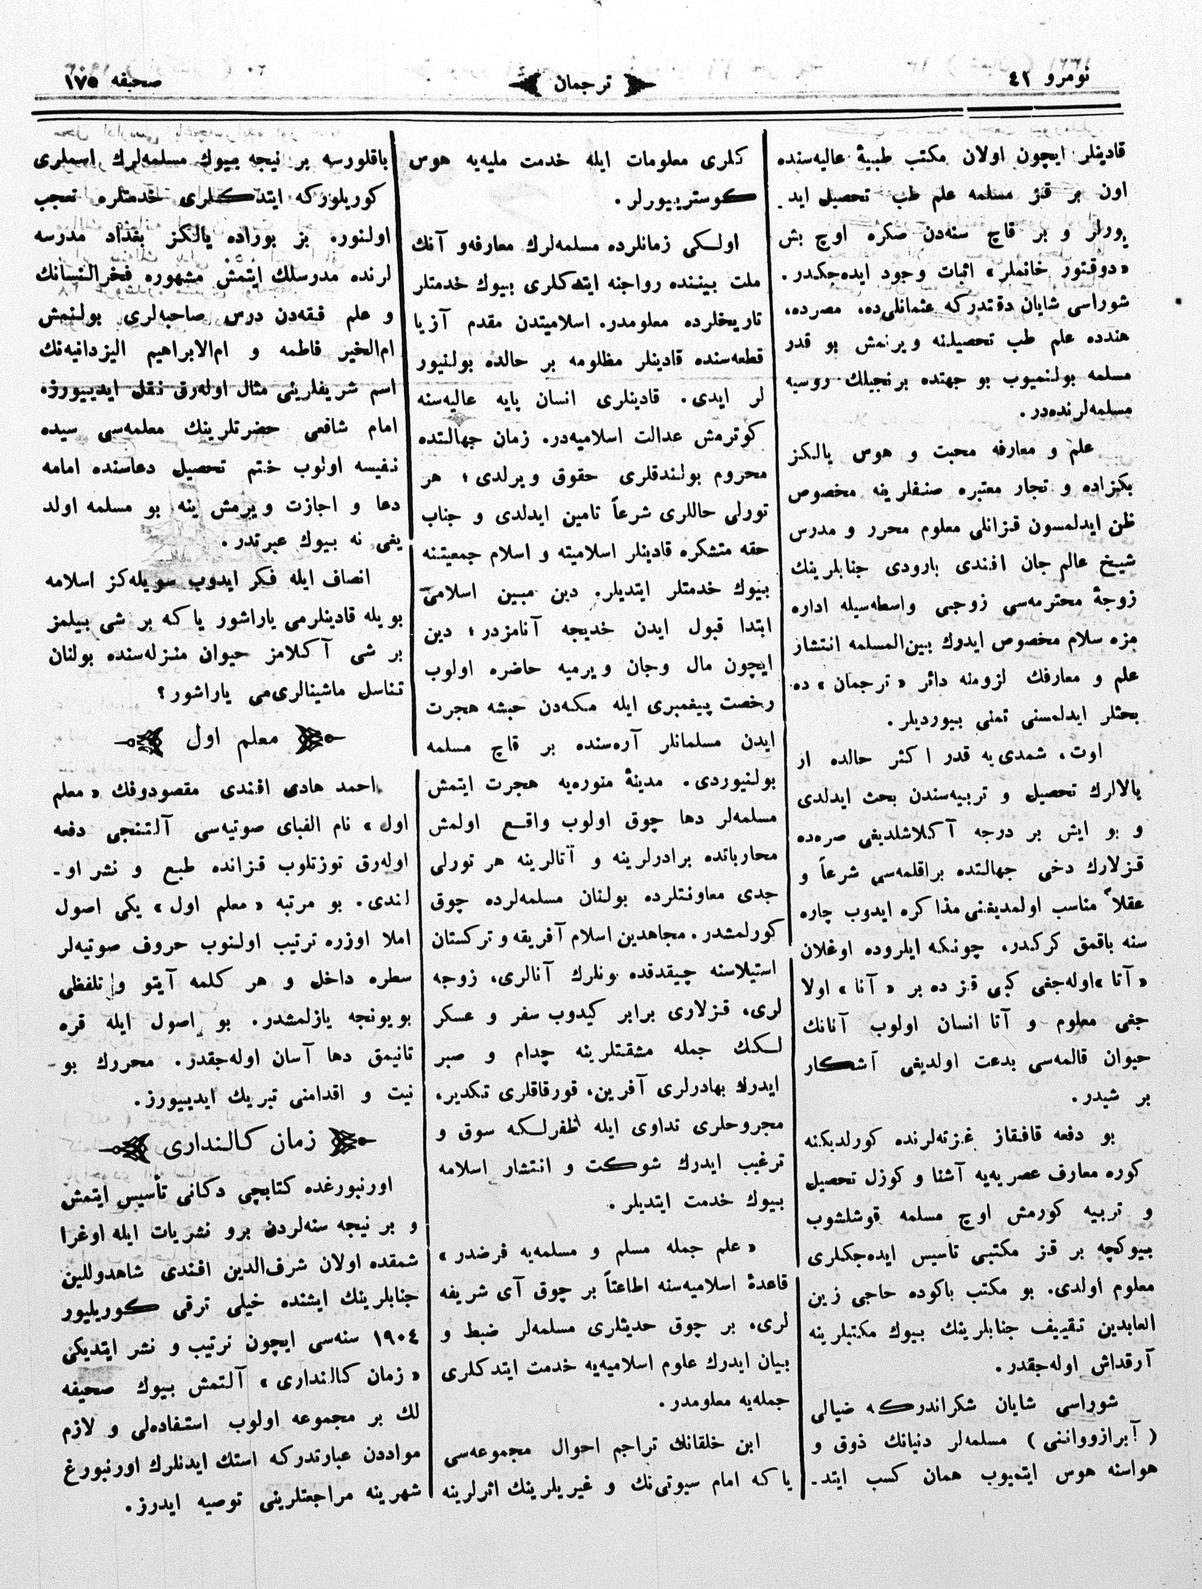 نومرو ٤٢
ترجمان
صحیفه ١٧٥
قادینلر ایچون اولان مکتب طبیهٔ عالیه‌سنده
اون بر قز مسلمه علم طب تحصیل اید.
یورلر و بر قاچ سنه‌دن صکره اوچ بش
«دوقتور خانملر» اثبات وجود ایده‌جکدر.
شوراسی شایان دقتدرکه عثمانلی‌ده، مصرده،
هندده علم طب تحصیلنه ویرنمش بو قدر
مسلمه بولنمیوب بو جهتده برنجیلك روسیه
مسلمه‌لرنده‌در.
علم و معارفه محبت و هوس یالکز
بکزاده و تجار معتبره صنفلرینه مخصوص
ظن ایدلمسون قزانلی معلوم محرر و مدرس
شیخ عالم جان افندی بارودی جنابلرینك
زوجهٔ محترمه‌سی زوجی واسطه‌سیله اداره
مزه سلام مخصوص ایدوك بین‌المسلمه انتشار
علم و معارفك لزومنه دائر «ترجمان» ده
بحثلر ایدلمسنی تمنی بیوردیلر.
اوت، شمدی‌یه قدر اکثر حالده از
یالالرك تحصیل و تربیه‌سندن بحث ایدلدی
و بو ایش بر درجه آکلاشلدیغی صره‌ده
قزلارك دخی جهالتده براقلمه‌سی شرعاً و
عقلاً مناسب اولمدیغنی مذاکره ایدوب چاره
سنه باقمق کرکدر، چونکه ایلروده اوغلان
«آتا» اوله‌جغی کبی قز ده بر «آنا» اولا
جغی معلوم و آتا انسان اولوب آنانك
حیوان قالمه‌سی بدعت اولدیغی آشکار
بر شیدر.
بو دفعه قافقاز غزته‌لرنده کورلدیکنه
کوره معارف عصریه‌یه آشنا و کوزل تحصیل
و تربیه کورمش اوچ مسلمه قوشلشوب
بیوکچه بر قز مکتبی تأسیس ایده‌جکلری
معلوم اولدی. بو مکتب باکوده حاجی زین
العابدین تقییف جنابلرینك بیوك مکتبلرینه
آرقداش اوله‌جقدر.
شوراسی شایان شکراندرکه ضیالی
(آبرازوواننی) مسلمه‌لر دنیانك ذوق و
هواسنه هوس ایتمیوب همان کسب ایتد-
کلری معلومات ایله خدمت ملیه‌یه هوس
کوستریبورلر.
اولکی زمانلرده مسلمه‌لرك معارفه‌و آنك
ملت بیننده رواجنه ایتدکلری بیوك خدمتلر
تاریخلرده معلومدر. اسلامیتدن مقدم آزیا
قطعه‌سنده قادینلر مظلومه بر حالده بولنیور
لر ایدی. قادینلری انسان پایه عالیه‌سنه
کوترمش عدالت اسلامیه‌در. زمان جهالتده
محروم بولندقلری حقوق ویرلدی؛ هر
تورلی حاللری شرعاً تامین ایدلدی و جناب
حقه متشکره قادینلر اسلامیته و اسلام جمعیتنه
بیوك خدمتلر ایتدیلر. دین مبین اسلامی
ابتدا قبول ایدن خدیجه آنامزدر؛ دین
ایچون مال وجان ویرمیه حاضره اولوب
رخصت پیغمبری ایله مکه‌دن حبشه هجرت
ایدن مسلمانلر آره‌سنده بر قاچ مسلمه
بولنیوردی. مدینهٔ منوره‌یه هجرت ایتمش
مسلمه‌لر دها چوق اولوب واقع اولمش
محارباتده برادرلرینه و آتالرینه هر تورلی
جدی معاونتلرده بولنان مسلمه‌لرده چوق
کورلمشدر. مجاهدین اسلام آفریقه و ترکستان
استیلاسنه چیقدقده ونلرك آنالری، زوجه
لری، قزلاری برابر کیدوب سفر و عسکر
لکك جمله مشقتلرینه چدام و صبر
ایدرك بهادرلری آفرین، قورقاقلری تکدیر،
مجروحلری تداوی ایله ظفرلکه سوق و
ترغیب ایدرك شوکت و انتشار اسلامه
بیوك خدمت ایتدیلر.
«علم جمله مسلم و مسلمه‌یه فرضدر»
قاعدهٔ اسلامیه‌سنه اطاعتاً بر چوق آی شریفه
لری، بر چوق حدیثلری مسلمه‌لر ضبط و
بیان ایدرك علوم اسلامیه‌یه خدمت ایتدکلری
جمله‌یه معلومدر.
ابن خلقانك تراجم احوال مجموعه‌سی
یا که امام سیوتی‌نك و غیریلرینك اثرلرینه
باقلورسه بر نیجه بیوك مسلمه‌لرك اسملری
کوریلورکه ایتدکلری خدمتلره تعجب
اولنور. بز بوراده یالکز بغداد مدرسه
لرنده مدرسلك ایتمش مشهوره فخرالنسانك
و علم فقه‌دن درس صاحبه‌لری بولنمش
ام‌الخیر فاطمه و ام‌الابراهیم الیزدانیه‌نك
اسم شریفلرینی مثال اوله‌رق نقل ایدیبورزه
امام شافعی حضرتلرینك معلمه‌سی سیده
نفیسه اولوب ختم تحصیل دعاسنده امامه
دعا و اجازت ویرمش ینه بو مسلمه اولد
یغی نه بیوك عبرتدر.
انصاف ایله فکر ایدوب سویله‌کز اسلامه
بویله قادینلرمی یاراشور یا که بر شی بیلمز
بر شی آکلامز حیوان منزله‌سنده بولنان
تناسل ماشینالری‌می یاراشور؟
معلم اول
احمد هادی افندی مقصودوفك «معلم
اول» نام الفبای صوتیه‌سی آلتنجی دفعه
اوله‌رق توزتلوب قزانده طبع و نشر او-
لندی. بو مرتبه «معلم اول» یکی اصول
املا اوزره ترتیب اولنوب حروف صوتیه‌لر
سطره داخل و هر کلمه آیتو و تلفظی
بویونجه یازلمشدر. بو اصول ایله قره
تانیمق دها آسان اوله‌جقدر. محررك بو
نیت و اقدامنی تبریك ایدیبورز.
زمان کالنداری
اورنبورغده کتابچی دکانی تأسیس ایتمش
و بر نیجه سنه‌لردن برو نشریات ایله اوغرا
شمقده اولان شرف‌الدین افندی شاهدوللین
جنابلرینك ایشنده خیلی ترقی کوریلیور
١٩٠٤ سنه‌سی ایچون ترتیب و نشر ایتدیکی
«زمان کالنداری» آلتمش بیوك صحیفه
لك بر مجموعه اولوب استفاده‌لی و لازم
موادّدن عبارتدرکه استك ایدنلرك اورنبورغ
شهرینه مراجعتلرینی توصیه ایدرز.